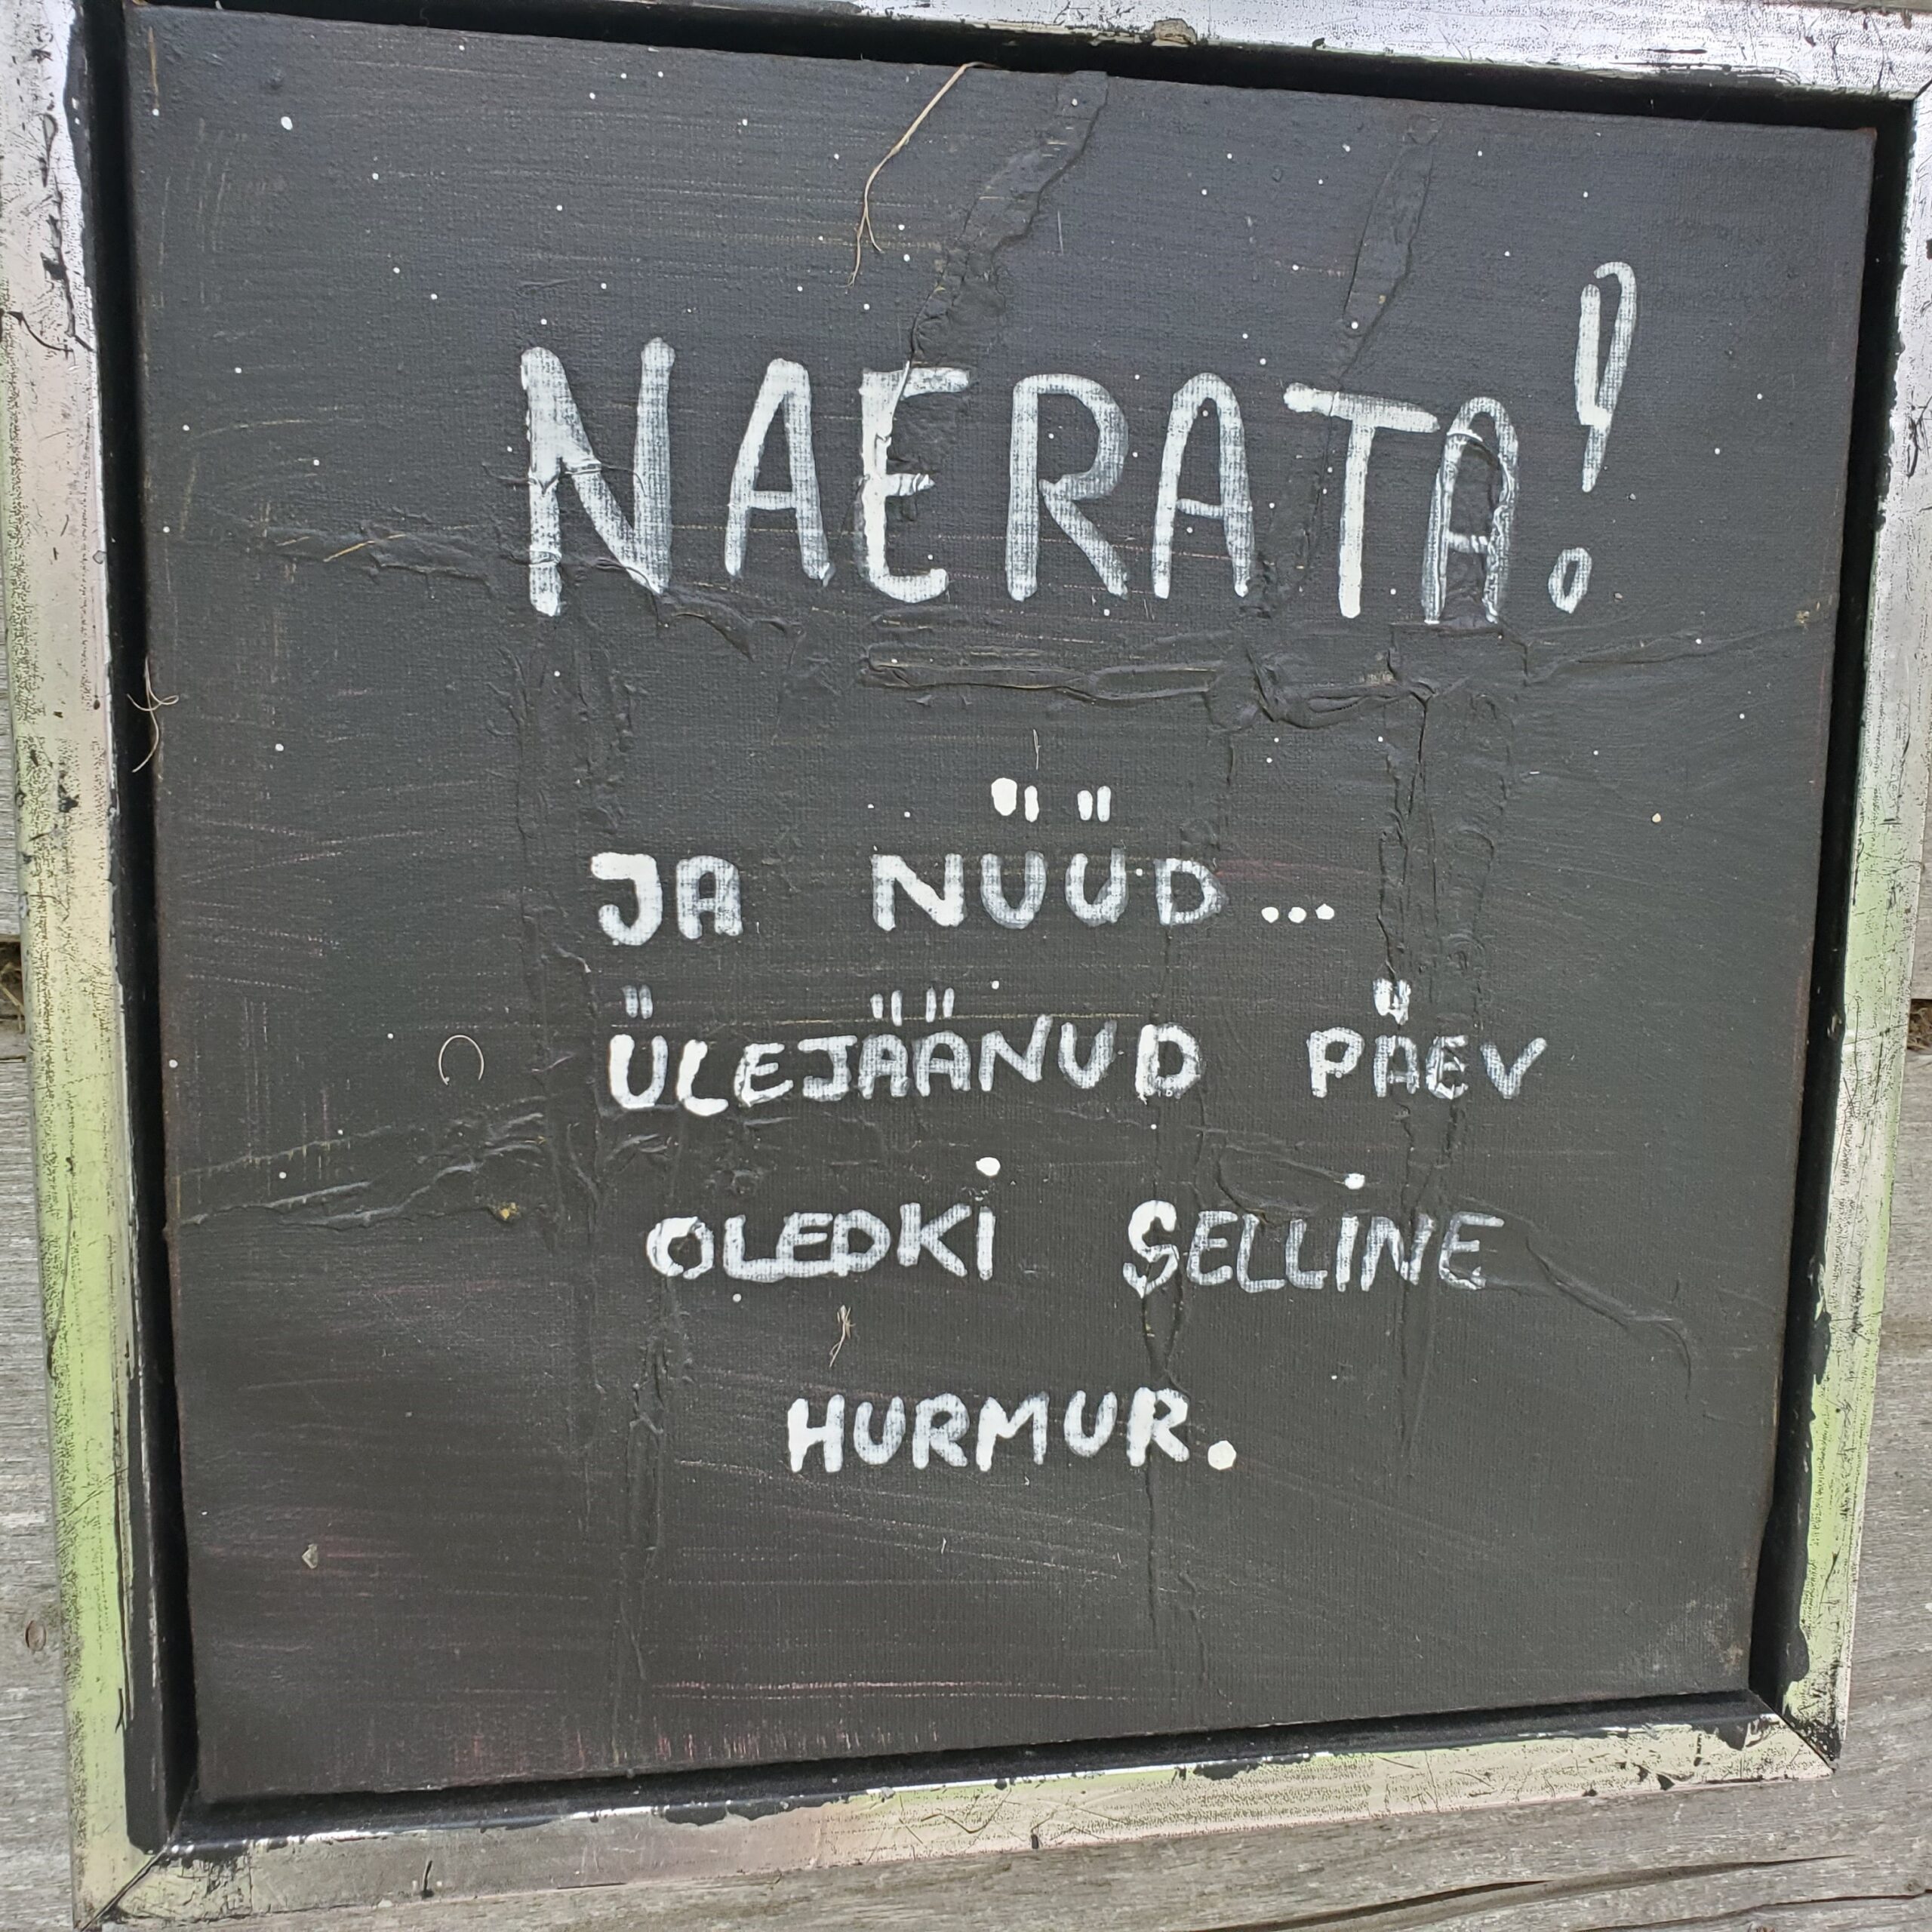 NAERATA!
JA NÜÜD...
ÜLEJÄÄNUD PÄEV
OLEDKI SELLINE
HURMUR.